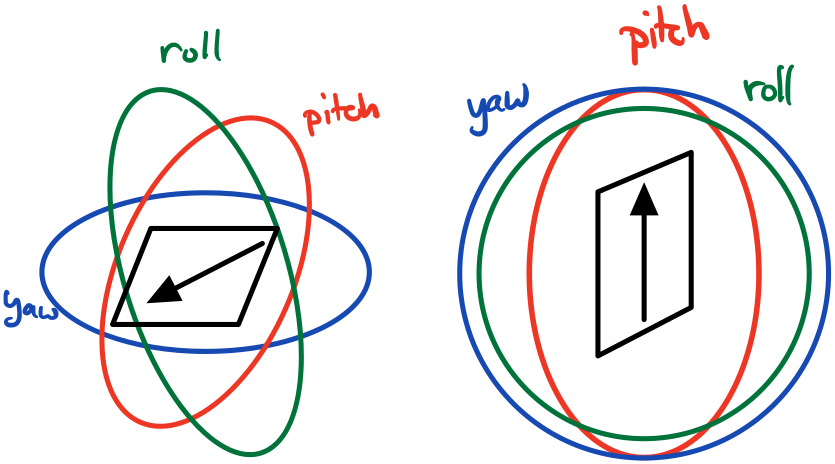 roll
pitch
yaw
pitch
yaw
roll